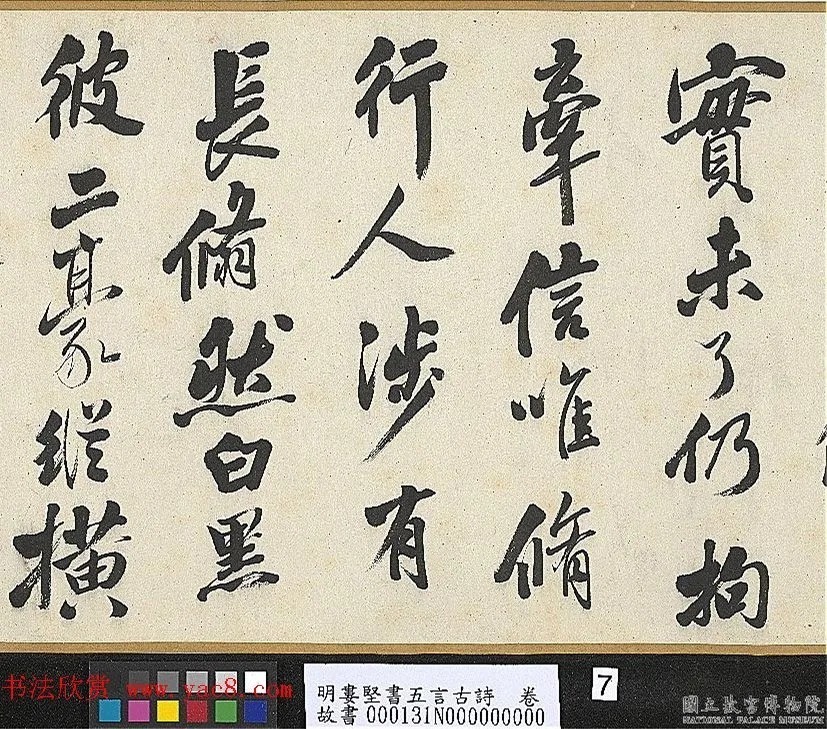 實未了仍拘
牽信唯脩
行人涉有
長翛然白黑
彼二豪縱橫
书法欣赏 www.yac8.com
明婁堅書五言古詩 卷
故書000131N000000000
7
國立故宮博物院
NATIONAL PALACE MUSEUM